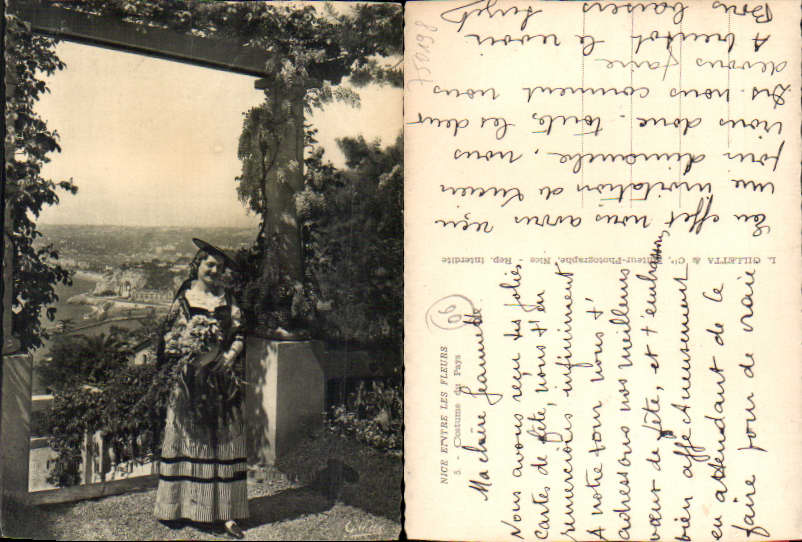 NICE ENTRE LES FLEURS
5. - Costume du Pays
60
Ma chère Jeannette
Nous avons reçu tes jolies
cartes de fête, nous t'en
remercions infiniment
A notre tour nous t'
adressons nos meilleurs
vœux de fête, et t'embrassons
bien affectueusement
en attendant de le
faire pour de vraie
L. GILLETTA & Cie, Editeur-Photographe, Nice - Rep. Interdite
En effet nous avons reçu
une invitation de Lucien
pour dimanche, nous
irons donc toute les deux
Dis nous comment nous
devons faire
A bientôt le revoir
Bons baisers
750198